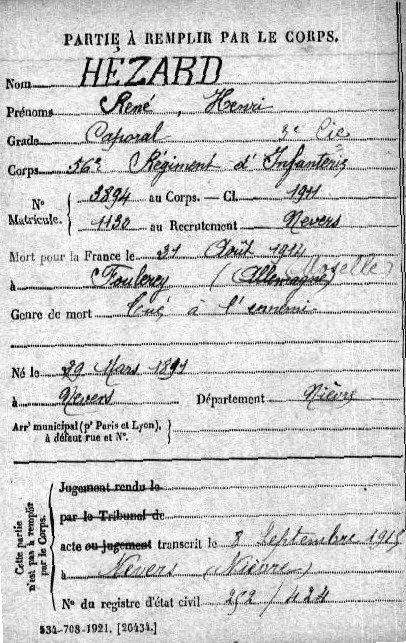 PARTIE À REMPLIR PAR LE CORPS.
Nom HÉZARD
Prénoms René, Henri
Grade Caporal 3e Cie
Corps 56e Régiment d'Infanterie
N° Matricule. { 3894 au Corps. — Cl. 1911
1130 au Recrutement Nevers
Mort pour la France le 21 Août 1914
à (Allemagne) Moselle
Genre de mort Tué à l'ennemi
Né le 29 Mars 1891
à Nevers Département Nièvre
Arrt municipal (pr Paris et Lyon), à défaut rue et N°.
Cette partie n'est pas à remplir par le Corps.
Jugement rendu le
par le Tribunal de
acte ou jugement transcrit le 8 Septembre 1915
à Nevers (Nièvre)
N° du registre d'état civil 252/424
534-708-1921. [26434.]